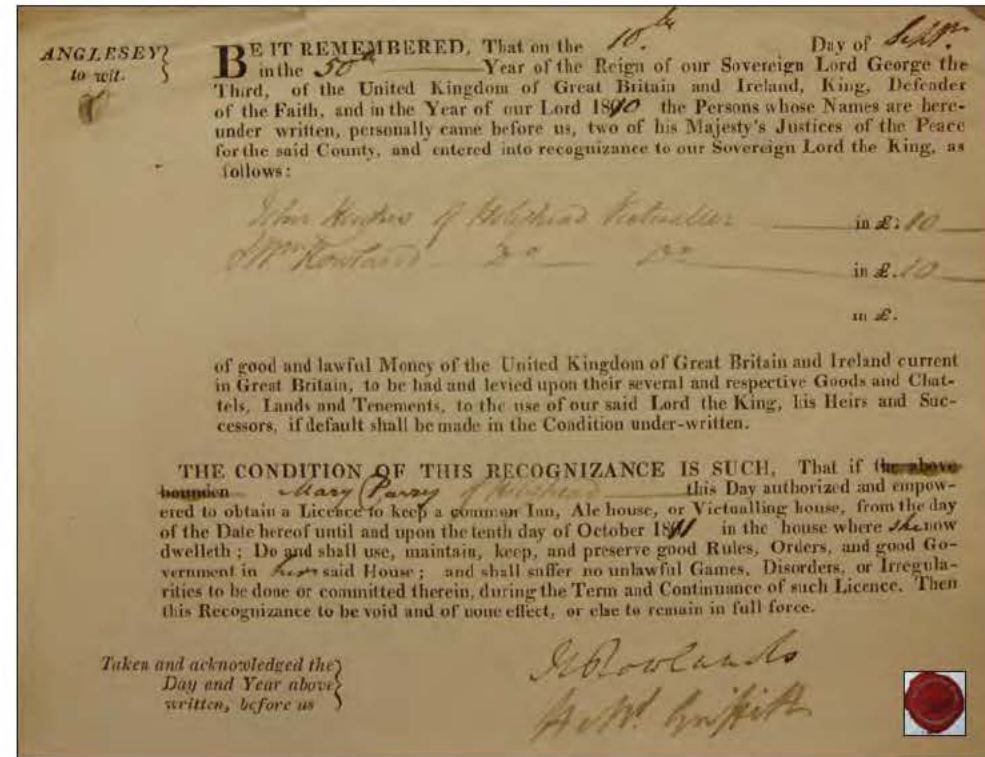 ANGLESEY
to wit.
BE IT REMEMBERED, That on the 10.th Day of Septr.
in the 50th Year of the Reign of our Sovereign Lord George the
Third, of the United Kingdom of Great Britain and Ireland, King, Defender
of the Faith, and in the Year of our Lord 1810 the Persons whose Names are here-
under written, personally came before us, two of his Majesty's Justices of the Peace
for the said County, and entered into recognizance to our Sovereign Lord the King, as
follows:
John Hughes of Holyhead Victualler in £. 10
Wm Rowland Do Do in £. 10
in £.
of good and lawful Money of the United Kingdom of Great Britain and Ireland current
in Great Britain, to be had and levied upon their several and respective Goods and Chat-
tels, Lands and Tenements, to the use of our said Lord the King, his Heirs and Suc-
cessors, if default shall be made in the Condition under-written.
THE CONDITION OF THIS RECOGNIZANCE IS SUCH, That if the above
bounden Mary Parry of Holyhead this Day authorized and empow-
ered to obtain a Licence to keep a common Inn, Ale house, or Victualling house, from the day
of the Date hereof until and upon the tenth day of October 1811 in the house where she now
dwelleth; Do and shall use, maintain, keep, and preserve good Rules, Orders, and good Go-
vernment in her said House; and shall suffer no unlawful Games, Disorders, or Irregula-
rities to be done or committed therein, during the Term and Continuance of such Licence. Then
this Recognizance to be void and of none effect, or else to remain in full force.
Taken and acknowledged the
Day and Year above
written, before us
Rowlands
Griffith